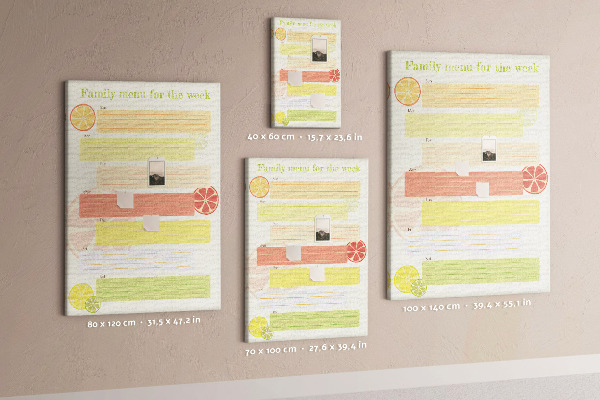 Family menu for the week
40 x 60 cm · 15,7 x 23,6 in
Family menu for the week
80 x 120 cm · 31,5 x 47,2 in
Family menu for the week
70 x 100 cm · 27,6 x 39,4 in
Family menu for the week
100 x 140 cm · 39,4 x 55,1 in